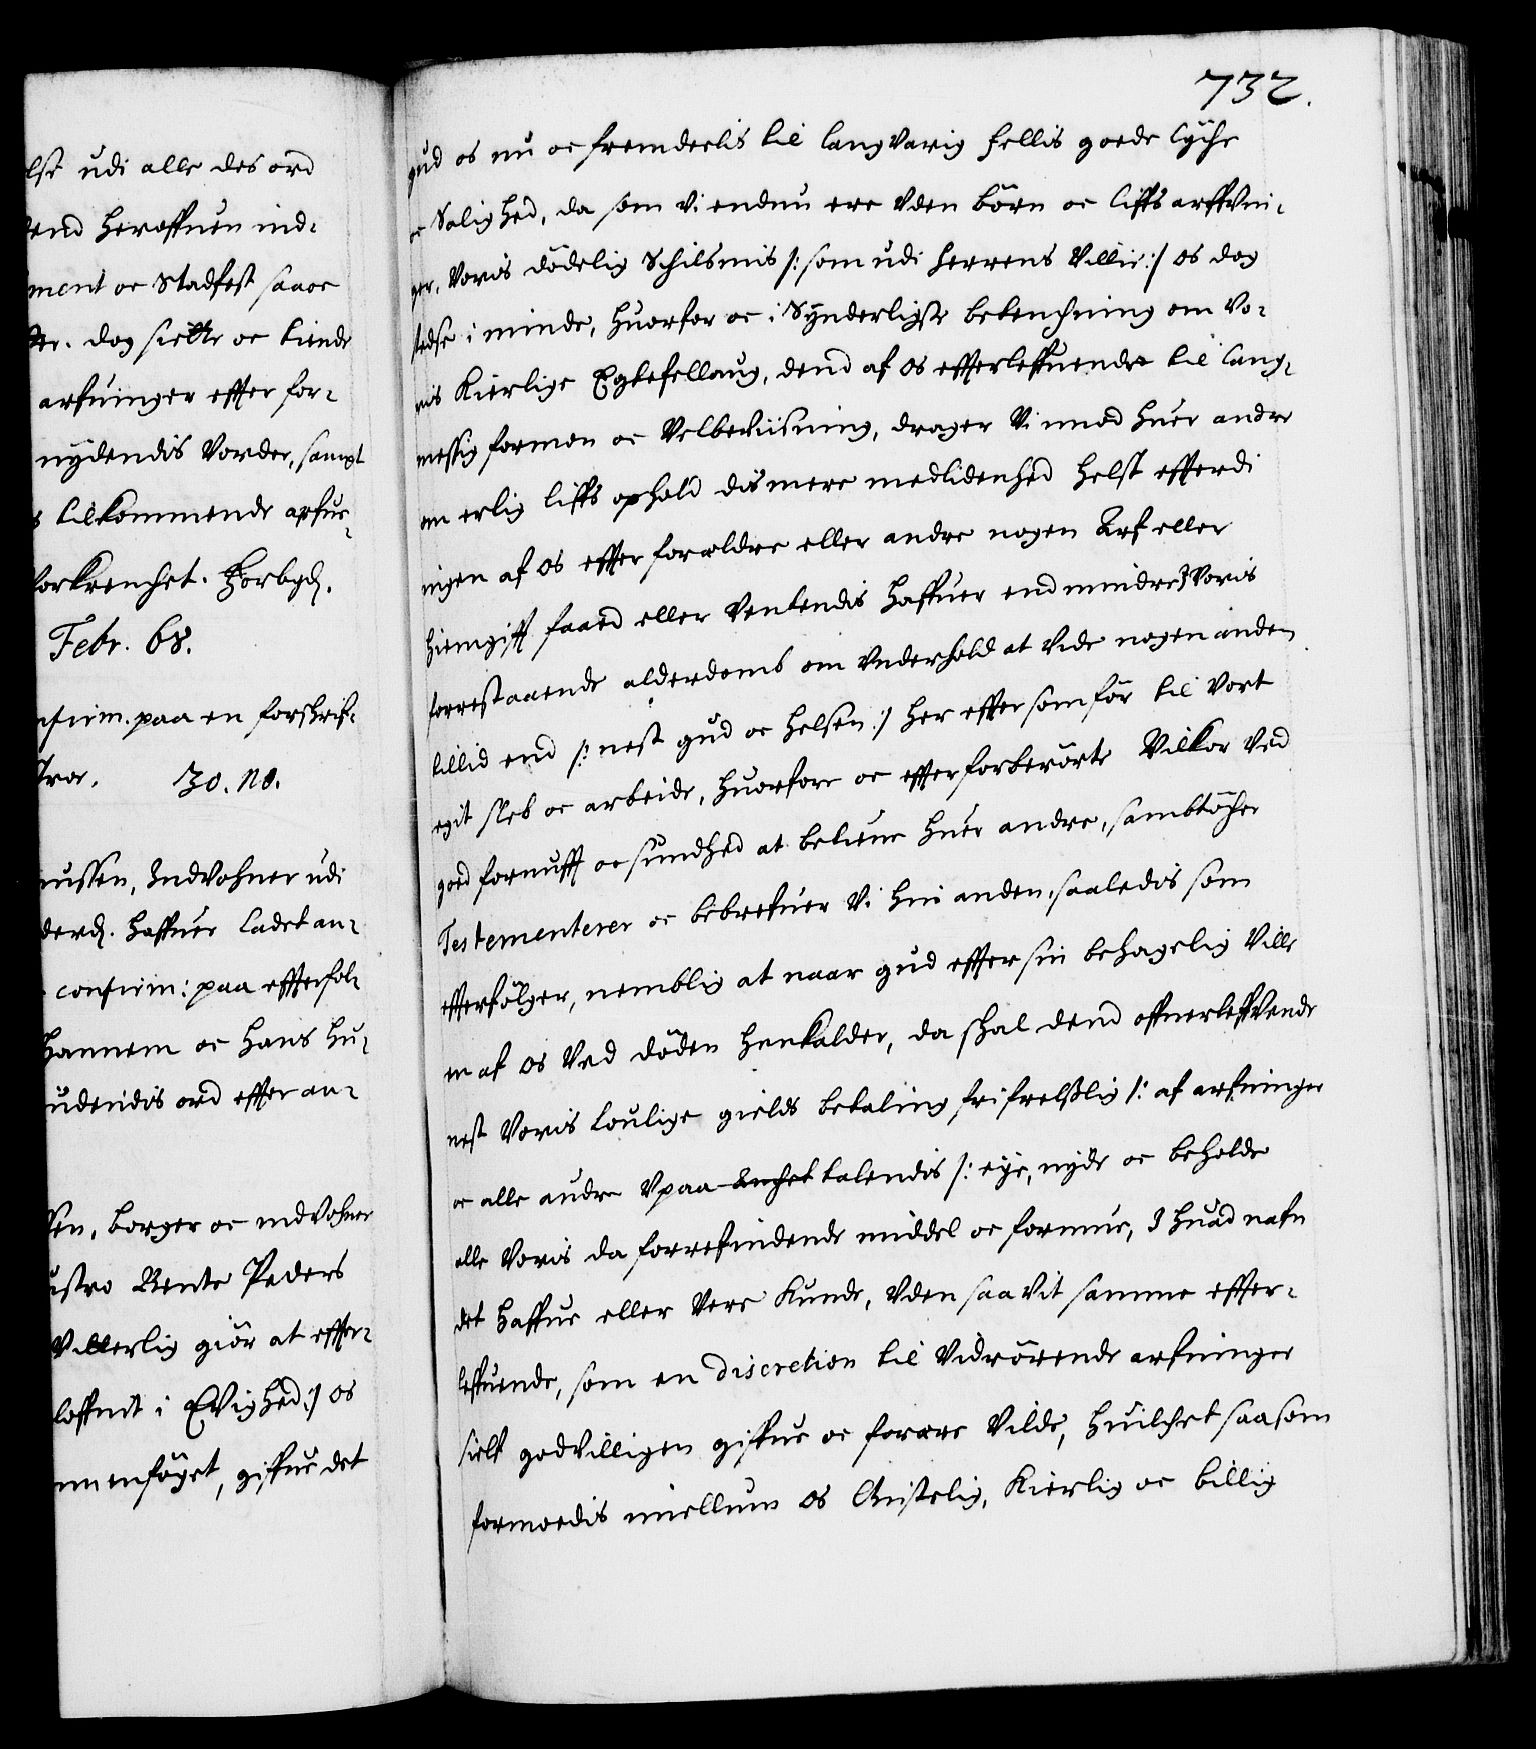 lse udi alle des ord
dend heroffuen ind-
ment oc Stadfest saaoc
dog siette oc tiende
arfuinger effter for-
nydendis Vorder, sampt
tilkommende arfue-
forkrenchet. Horbgd.
Febr. 68.
nfirm. paa en forskrif-
30. no.
nussen, Indvohner udi
derd. haffuer ladet an-
confirm: paa effterføl-
hannem oc hans hu-
udendis ord effter an-
sen, borger oc indvohner
ustro Bente Peders
Vitterlig giör at effter-
loffuit i Evighed:/ os
nmenföyet, giffue det
732.
gud os nu oc fremdeelis til langvarig fellis goede lyche
oc Salighed, da som vi endnu ere Uden börn oc liffs arffvin-
ger, Voris dödelig Skilsmis /: som udi herrens Villie:/ os dog
stedse i minde, huorfor oc i Synderligste betenchning om Vo-
ris Kierlige Egtefellaug, dend af os effterleffuende til lang-
messig formon oc Velbeviisning, drager Vi imod huer andre
om erlig liffs ophold dismere medlidenhed helst effterdi
ingen af os effter forældre eller andre nogen Arf eller
hiemgifft faaed eller Ventendis haffuer end mindre I Voris
forrestaaende alderdoms om Underhold at Vide nogen anden
tillid end /: nest gud oc helsen:/ her effter som för til Vort
egit sleb oc arbeide, huorfore oc effter forberörte Vilkor Ved
goed fornufft oc sundhed at betiene huer andre, sambtöcher
Testementerer oc bebrefuer Vi hin anden, saaledis som
effterfölger, nemblig at naar gud effter sin behagelig Ville
en af os Ved döden henkalder, da skal dend offuerleffvende
nest Voris loulige gields betaling fri frelßlig /: af arfuinger
oc alle andre Upaa Anchet talendis /: eye, nyde oc beholde
alle Voris da forrefindende middel oc formue, I huad nafn
det haffue eller Vere Kunde, Uden saavit samme effter-
leffuende, som en discretion til Vidrörende arfuinger
sielf godvilligen giffue oc forære Vilde, huilchet saasom
formoedis imellum os Christelig, Kierlig oc billig